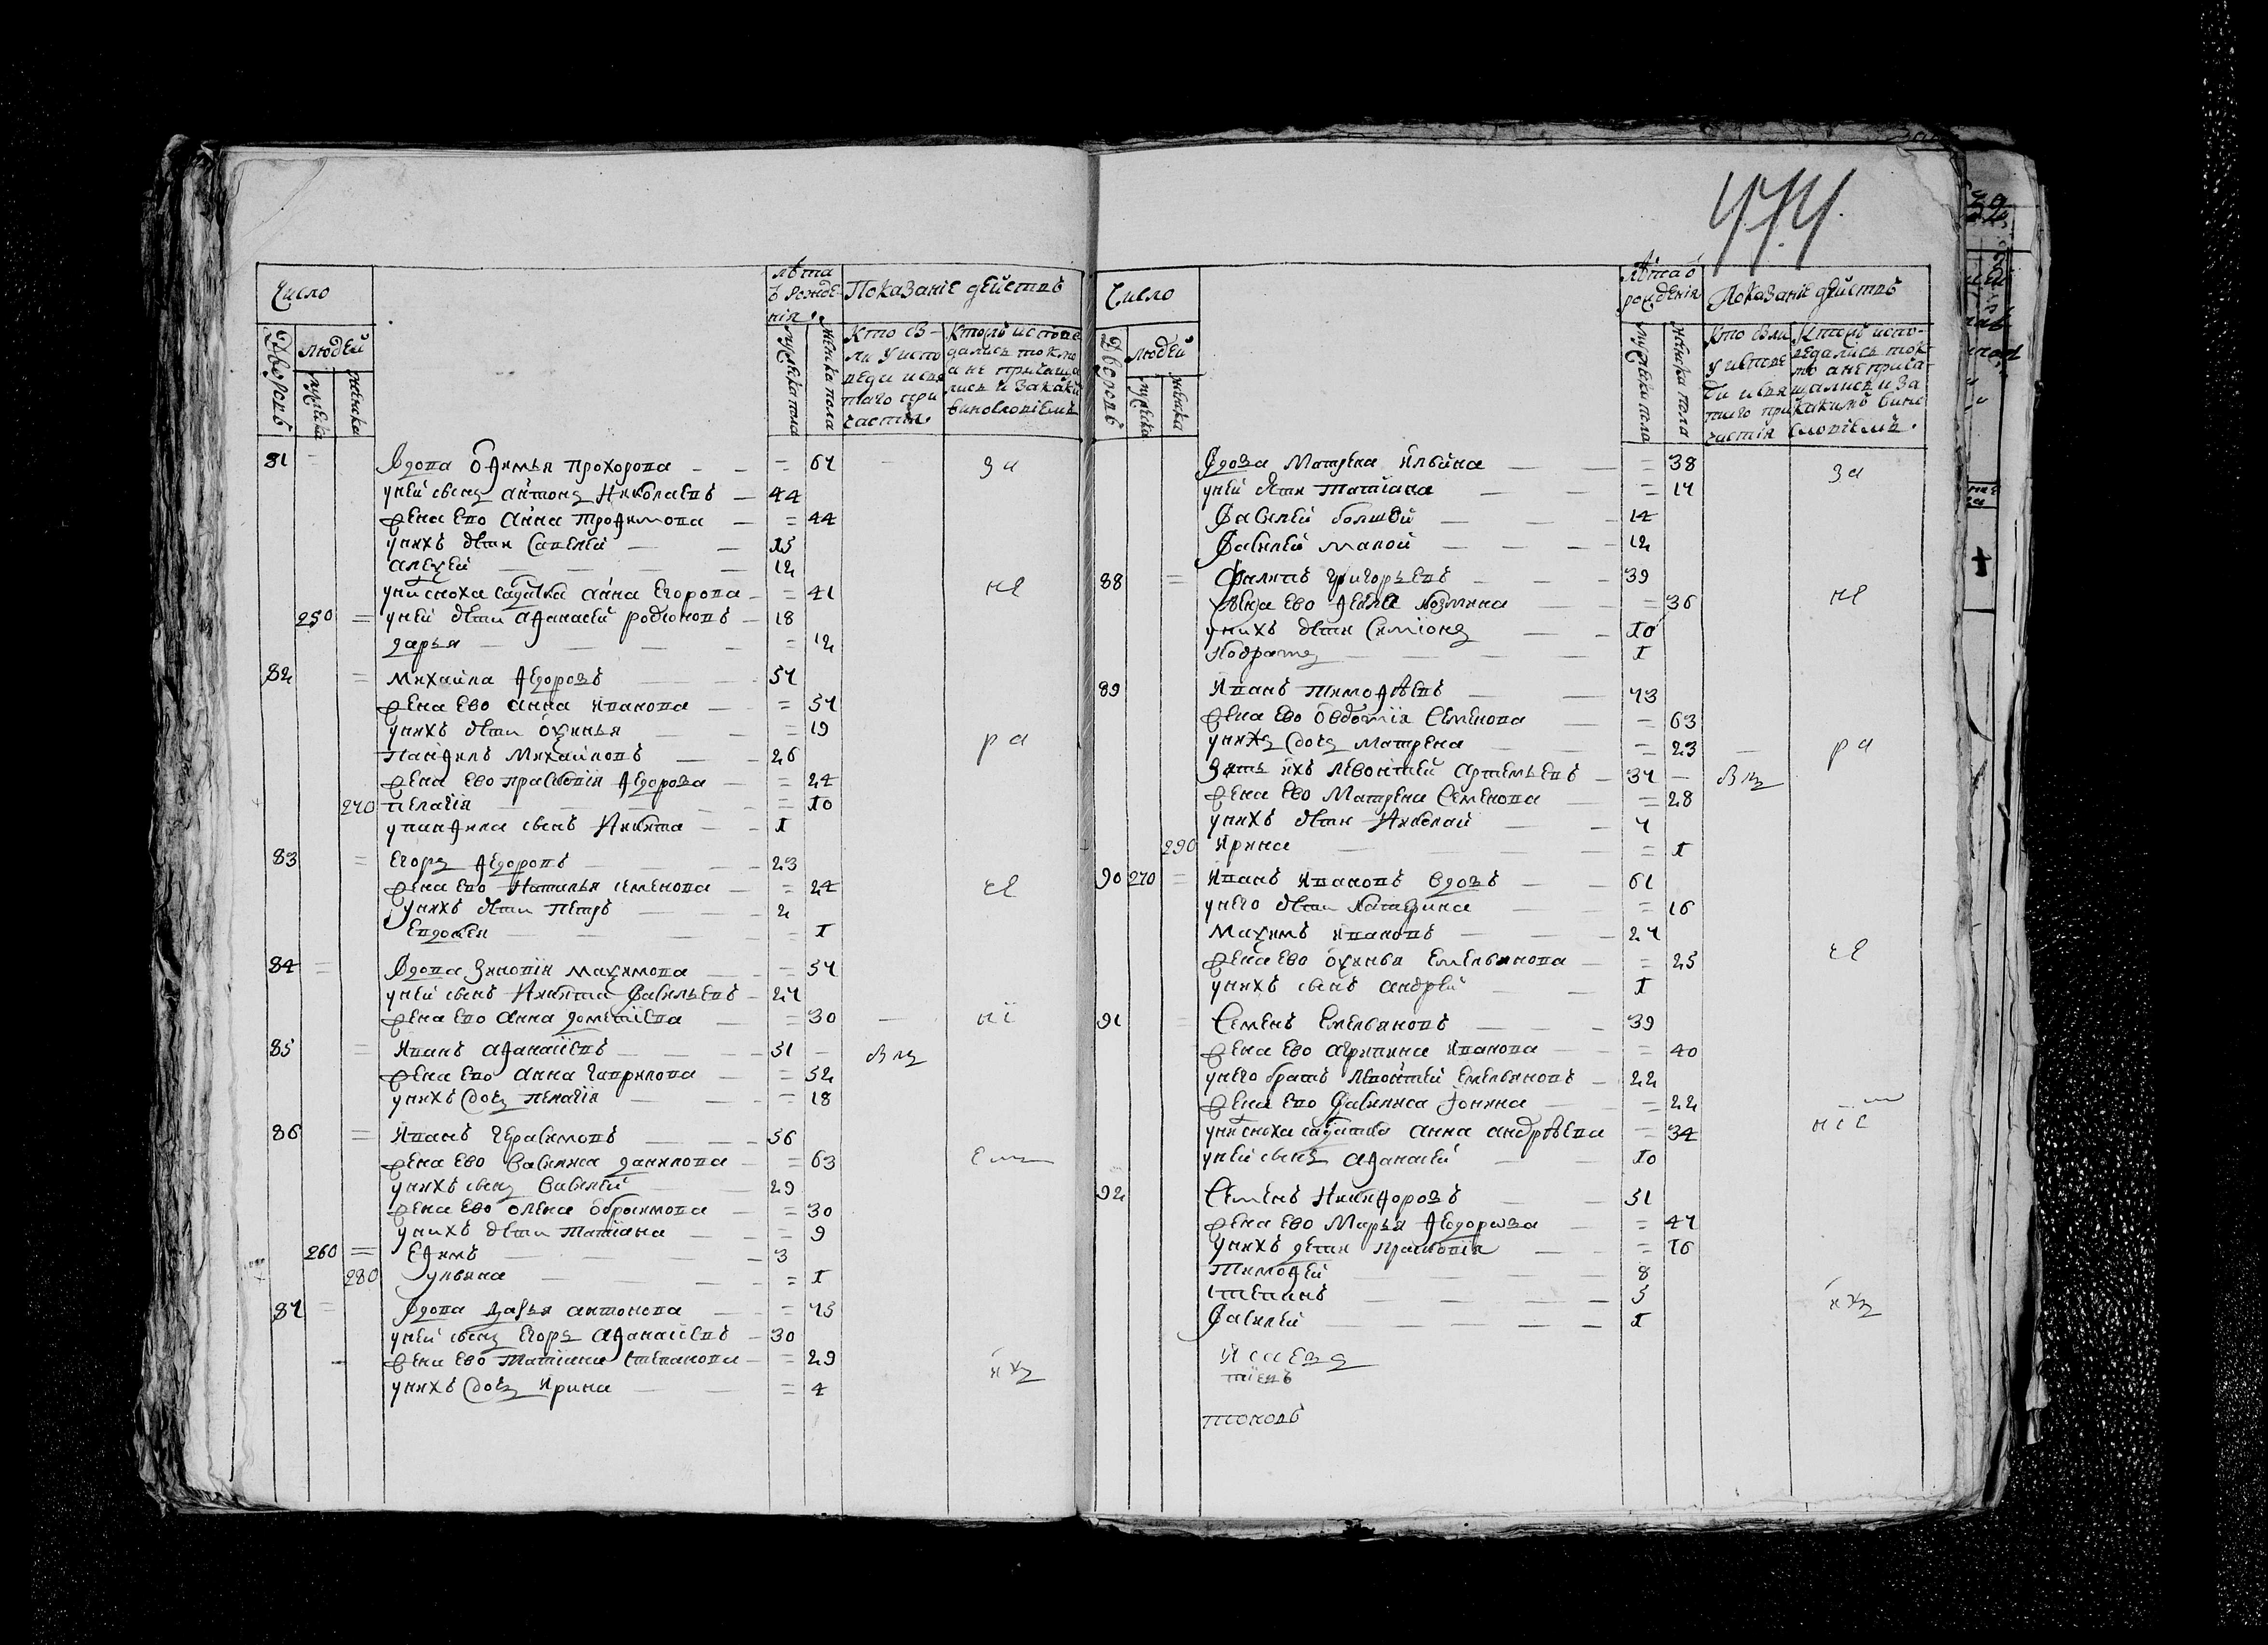 474.
Число
лѣта
ѿ рожде-
нія
Показаніе действъ
Дворовъ
людей
мужска
женска
мужска пола
женска пола
Кто бы-
ли у испо
веди и свя
таго при
частия
Ктожъ испове
дались токмо
а не прича
лись и за каки
винословіемъ
81 = Вдова Офимья Прохорова — — = 64 за
у ней сынъ Антонъ Николаевъ — 44
жена ево Анна Трофимова — = 44
у нихъ дети Савелей — — 15
Алеѯей — — — — 12
у ней сноха салдатка Анна Егорова — = 41 не
250 = у ней дети Афанасей Родионовъ — 18
Дарья — — — — = 12
82 = Михайла Федоровъ — — 54
жена ево Анна Иванова — = 54
у нихъ дети Оѯинья — — = 19 ра
Панфилъ Михайловъ — — 26
жена ево Прасковія Федорова — = 24
270 Пелагія — — — — = 10
у Панфила сынъ Никита — — 1
83 = Егоръ Федоровъ — — — 23
жена ево Наталья Семенова — = 24 че
у нихъ дети Петръ — — 2
Евдокея — — — = 1
84 = Вдова Зиновія Маѯимова — — = 54
у ней сынъ Никита Васильевъ — 24
жена ево Анна Дометиева — = 30 — ні
85 = Иванъ Афанасіевъ — — — 51 — былъ
жена ево Анна Гаврилова — = 52
у нихъ дочь Пелагія — — = 18
86 = Иванъ Герасимовъ — — — 56
жена ево Василиса Данилова — = 63 емъ
у нихъ сынъ Василей — — 29
жена ево Олена Обросимова — = 30
у нихъ дети Татіана — — = 9
260 = Ефимъ — — — 3
280 Ульяна — — — = 1
87 = Вдова Дарья Антонова — = 45
у ней сынъ Егоръ Афанасіевъ — 30
жена ево Татіана Степанова — = 29 ихъ
у нихъ дочь Ирина — — = 4
Число
лѣта ѿ
рожденія
Показаніе действъ
Дворовъ
людей
мужска
женска
мужска пола
женска пола
Кто были
у испове
ди и свя
таго при
частія
Ктожъ испо-
ведались ток-
мо а не прича-
щались и за
какимъ вино
словіемъ.
Вдова Матрена Ильина — — = 38 за
у ней дети Татіана — — = 14
Василей большой — — — 14
Василей малой — — — 12
88 = Филипъ Григорьевъ — — 39
жена ево Фекла Козмина — — = 36 не
у нихъ дети Симіонъ — — 10
Кодратъ — — — — 1
89 Иванъ Тимофѣевъ — — 73
жена ево Овдотія Семенова — = 63
у нихъ дочь Матрена — — = 23 — ра
зять ихъ Левонтей Артемьевъ — 34 — былъ
жена ево Матрена Семенова — = 28
у нихъ дети Николай — — 4
290 Ирина — — — — = 1
90 270 = Иванъ Ивановъ вдовъ — — 61
у него дети Катерина — — = 16
Маѯимъ Ивановъ — — — 24
жена ево Оѯинья Емельянова — = 25 че
у нихъ сынъ Андрей — — 1
91 = Семенъ Емельяновъ — — 39
жена ево Агрипина Иванова — = 40
у него братъ Левонтей Емельяновъ — 22
жена ево Василиса Фомина — = 22
у ни сноха салдатка Анна Андрѣева = 34 ніе
у ней сынъ Афанасей — — 10
92 Семенъ Никифоровъ — — 51
жена ево Марья Федорова — = 44
у нихъ дети Прасковія — — = 16
Тимофей — — — — 8
Степанъ — — — — 5
Василей — — — — 1 ихъ